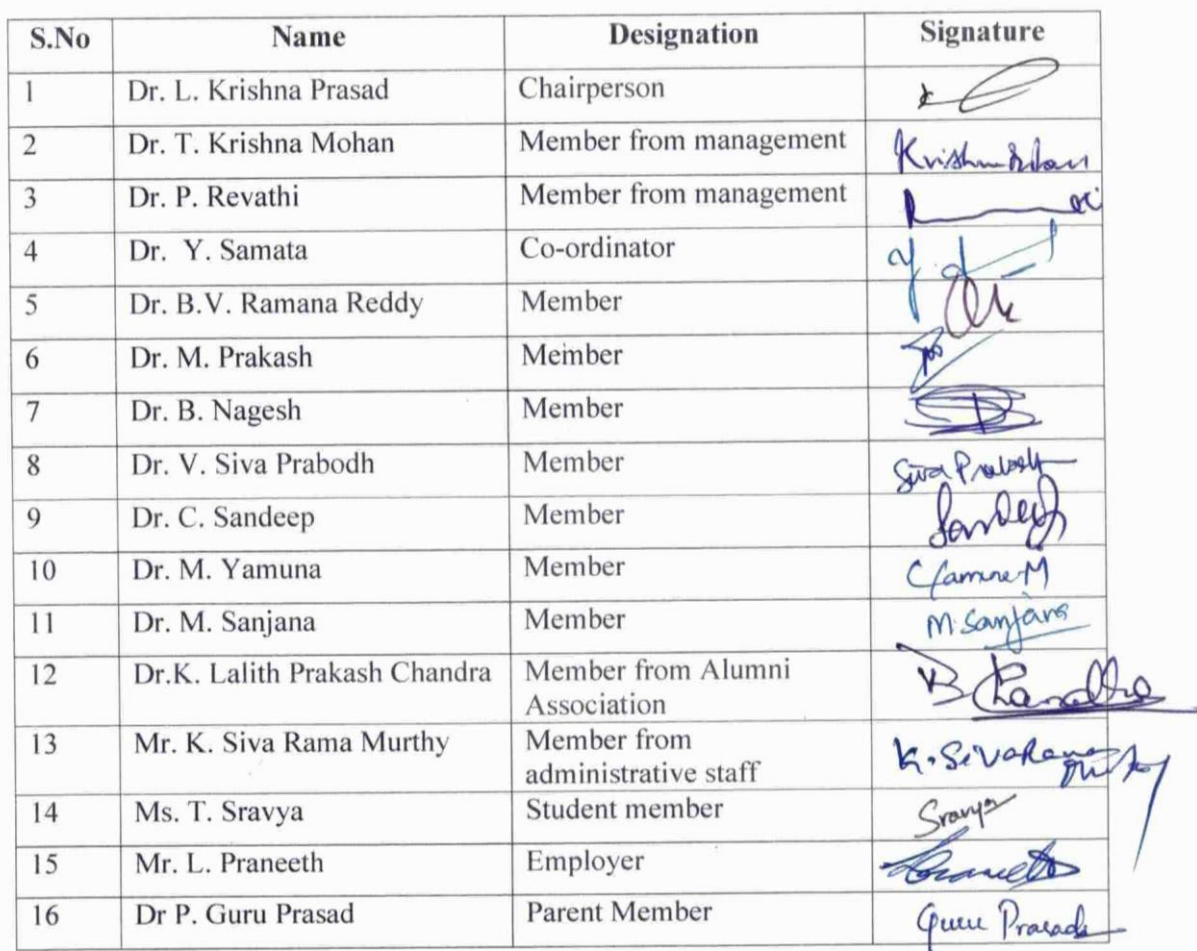 S.No Name Designation Signature
1 Dr. L. Krishna Prasad Chairperson
2 Dr. T. Krishna Mohan Member from management
3 Dr. P. Revathi Member from management
4 Dr. Y. Samata Co-ordinator
5 Dr. B.V. Ramana Reddy Member
6 Dr. M. Prakash Member
7 Dr. B. Nagesh Member
8 Dr. V. Siva Prabodh Member Siva Prabodh
9 Dr. C. Sandeep Member Sandeep
10 Dr. M. Yamuna Member
11 Dr. M. Sanjana Member M. Sanjana
12 Dr.K. Lalith Prakash Chandra Member from Alumni
Association
13 Mr. K. Siva Rama Murthy Member from K. SivaRama
administrative staff
14 Ms. T. Sravya Student member Sravya
15 Mr. L. Praneeth Employer
16 Dr P. Guru Prasad Parent Member Guru Prasad